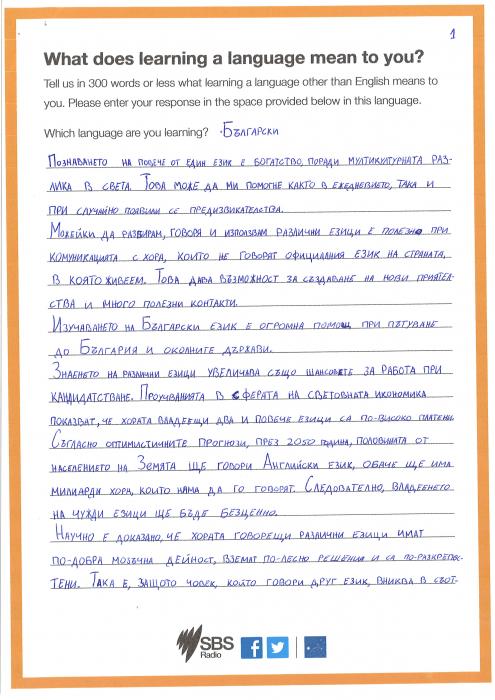 1
What does learning a language mean to you?
Tell us in 300 words or less what learning a language other than English means to
you. Please enter your response in the space provided below in this language.
Which language are you learning? Български
Познаването на повече от един език е богатство, поради мултикултурната раз-
лика в света. Това може да ми помогне както в ежедневието, така и
при случайно появили се предизвикателства.
Можейки да разбирам, говоря и използвам различни езици е полезно при
комуникацията с хора, които не говорят официалния език на страната,
в която живеем. Това дава възможност за създаване на нови приятел-
ства и много полезни контакти.
Изучаването на Български език е огромна помощ при пътуване
до България и околните държави.
Знаенето на различни езици увеличава също шансовете за работа при
кандидатстване. Проучванията в сферата на световната икономика
показват, че хората владеещи два и повече езици са по-високо платени.
Съгласно оптимистичните прогнози, през 2050 година, половината от
населението на Земята ще говори Английски език, обаче ще има
милиарди хора, които няма да го говорят. Следователно, владеенето
на чужди езици ще бъде безценно.
Научно е доказано, че хората говорещи различни езици имат
по-добра мозъчна дейност, вземат по-лесно решения и са по-разкрепос-
тени. Така е, защото човек, който говори друг език, вниква в съот-
SBS
Radio